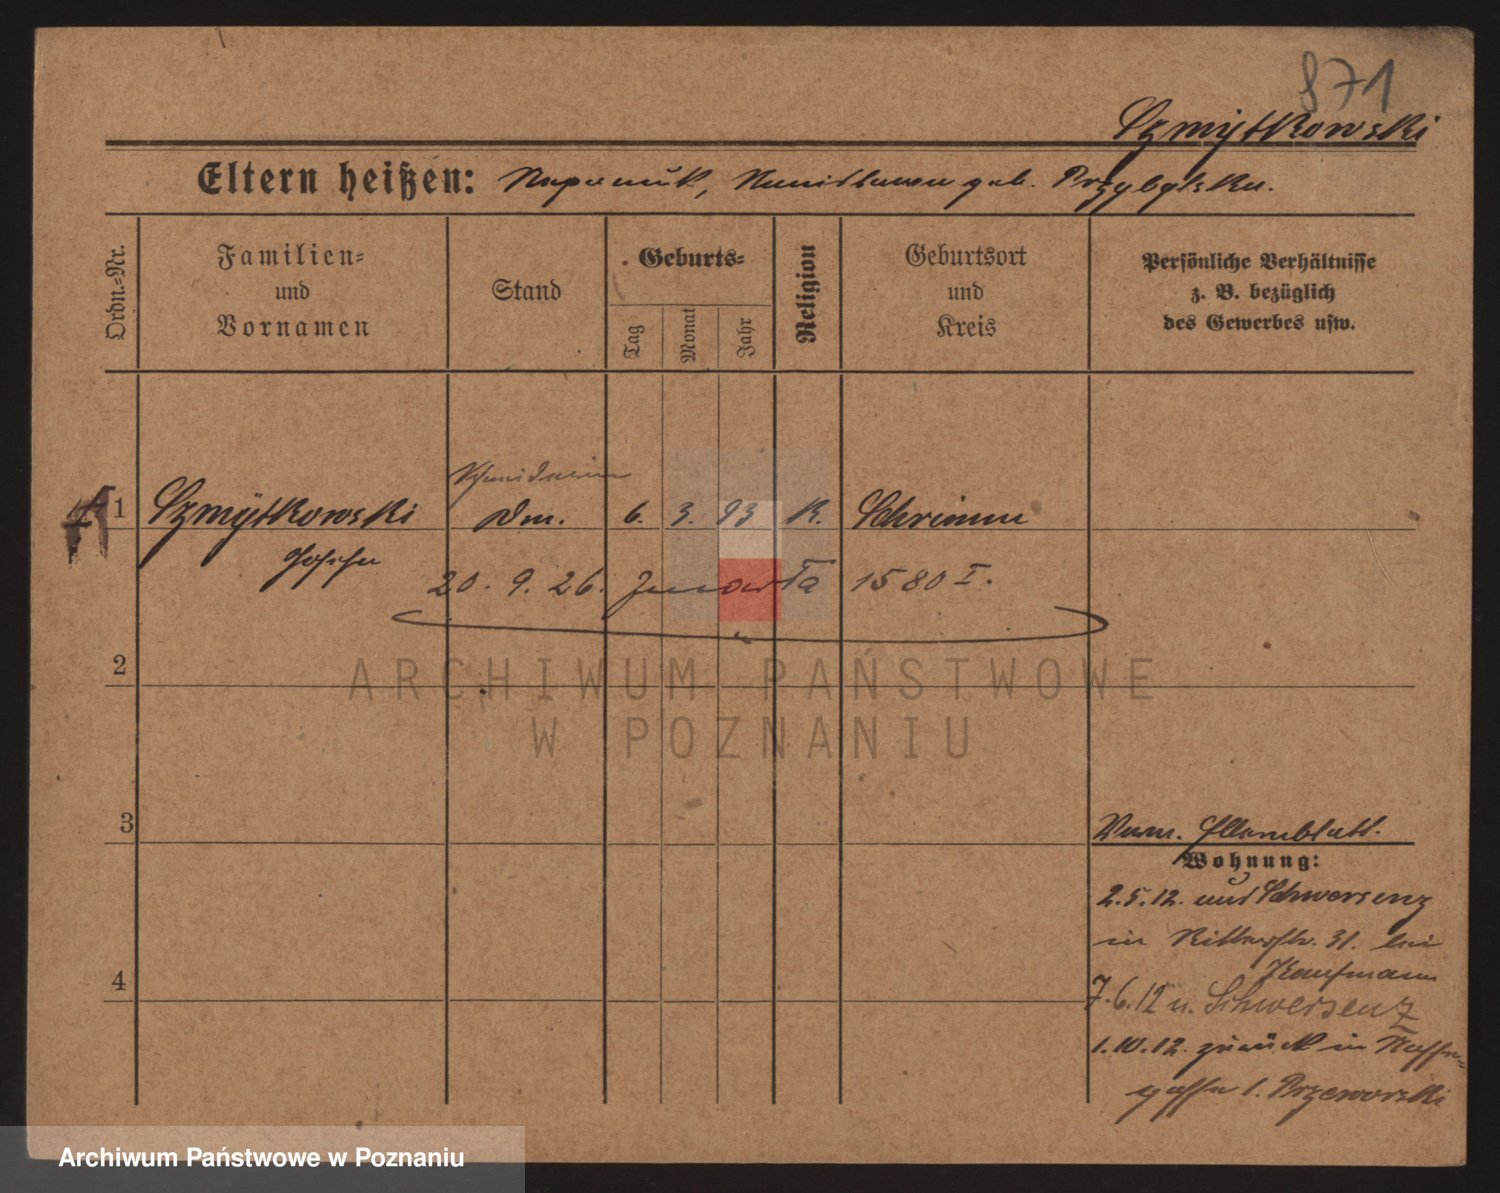 871
Szmytkowski
Eltern heißen: Nepomuk, Stanislawa geb. Przybylska.
Ordn.-Nr.
Familien-
und
Vornamen
Stand
Geburts-
Tag
Monat
Jahr
Religion
Geburtsort
und
Kreis
Persönliche Verhältnisse
z. B. bezüglich
des Gewerbes usw.
Schneiderin
1 Szmytkowski 6. 3. 93 K. Schrimm
20. 9. 26. 1580 I.
2
ARCHIWUM PAŃSTWOWE
W POZNANIU
3
Elternblatt.
Wohnung:
2.5.12. aus Schwersenz
in Ritterstr. 31. bei
Kaufmann
4
7.6.12 n. Schwersenz
1.10.12. zurück in
gasse 1. Przeworski
Archiwum Państwowe w Poznaniu